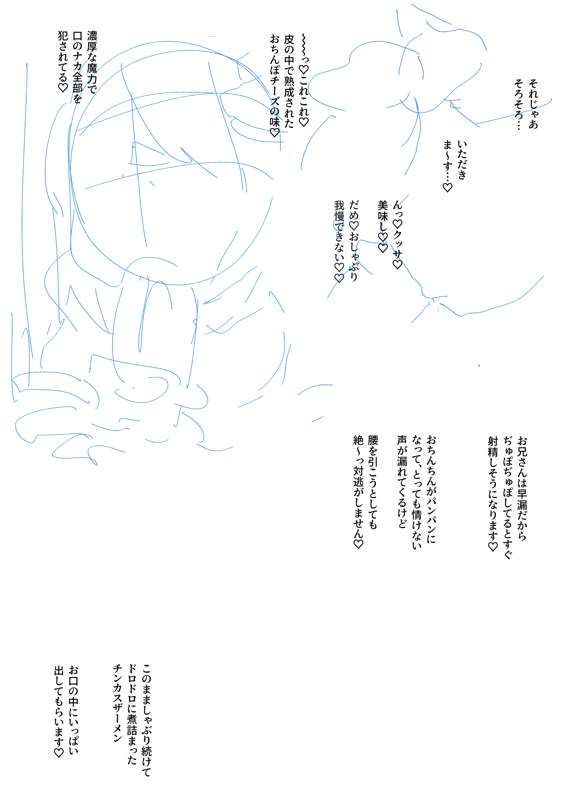 それじゃあ
そろそろ…
いただき
ま〜す…♡
んっ♡クッサ♡
美味し♡♡
だめ♡おしゃぶり
我慢できない♡♡
〜〜〜っ♡これこれ♡
皮の中で熟成された
おちんぽチーズの味♡
濃厚な魔力で
口のナカ全部を
犯されてる♡
お兄さんは早漏だから
ぢゅぽぢゅぽしてるとすぐ
射精しそうになります♡
おちんちんがパンパンに
なって、とっても情けない
声が漏れてくるけど
腰を引こうとしても
絶〜っ対逃がしません♡
このまましゃぶり続けて
ドロドロに煮詰まった
チンカスザーメン
お口の中にいっぱい
出してもらいます♡